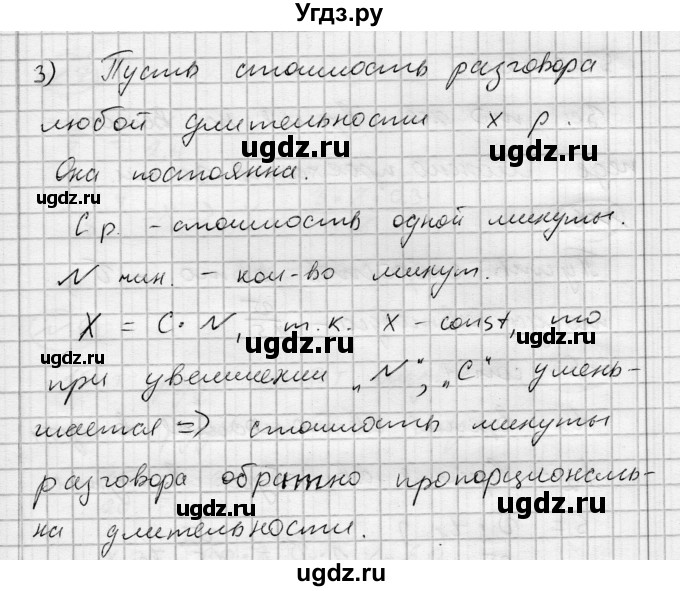 Угдз.ру
3) Пусть стоимость разговора
любой длительности x р.
ugdz.ru ugdz.ru
Она постоянна.
ugdz.ru
C р. - стоимость одной минуты.
N мин. - кол-во минут.
X = C · N, т.к. X - const, то
ugdz.ru ugdz.ru
при увеличении „N“, „C“ умень-
шается => стоимость минуты
разговора обратно пропорциональ-
ugdz.ru ugdz.ru
на длительности.
ugdz.ru